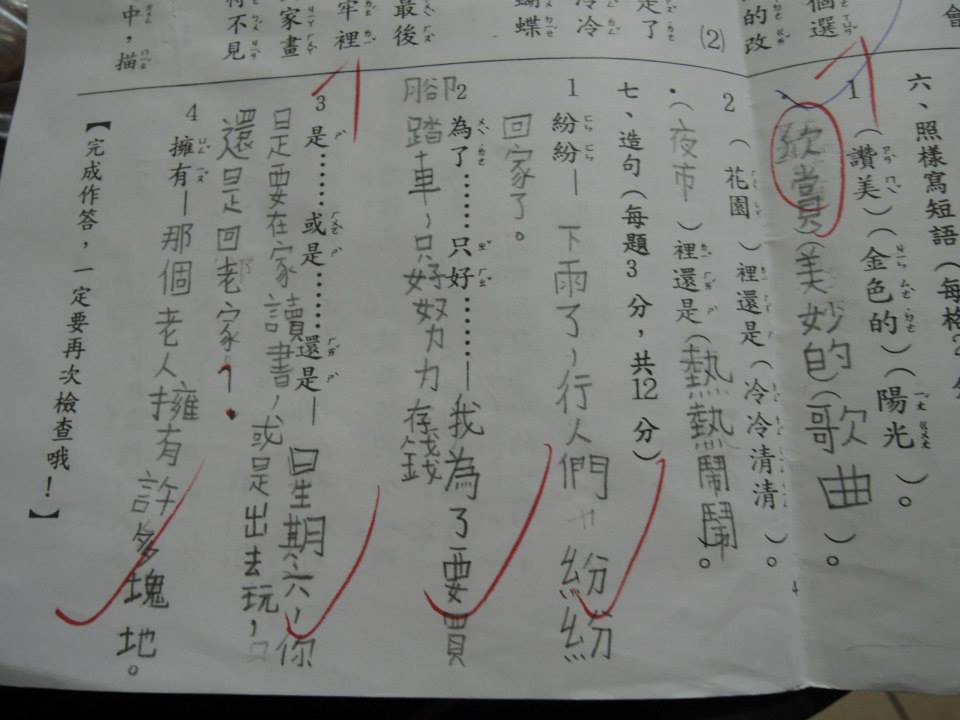 會
個選
的改
(2)
冷冷
蝴蝶
最後
牢裡
家畫
不見
中，描
六、照樣寫短語（每格2分
1（讚美）（金色的）（陽光）。
（欣賞）（美妙的（歌曲）。
2（花園）裡還是（冷冷清清）。
（夜市）裡還是（熱熱鬧鬧。
七、造句（每題3分，共12分）
1紛紛—下雨了，行人們紛紛
回家了。
2為了………只好………—我為了要買
腳踏車，只好努力存錢
3是……或是………還是—星期六，你
是要在家讀書，或是出去玩，
還是回老家？
4擁有—那個老人擁有許多塊地。
【完成作答，一定要再次檢查哦！】
4